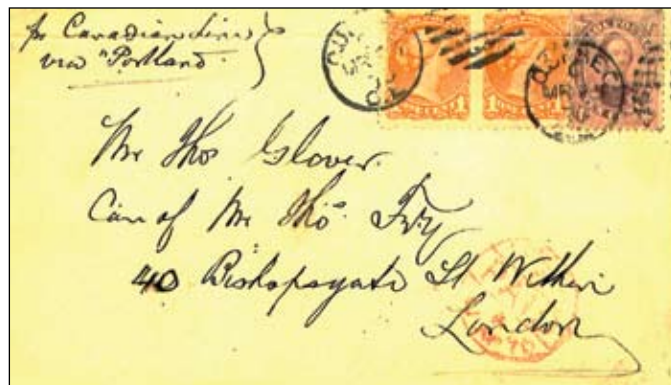 pr Canadian Line
via "Portland
QUEBEC
1 1
Mr Thos Glover.
Care of Mr Thos Fry
40 Bishopsgate St Within
London